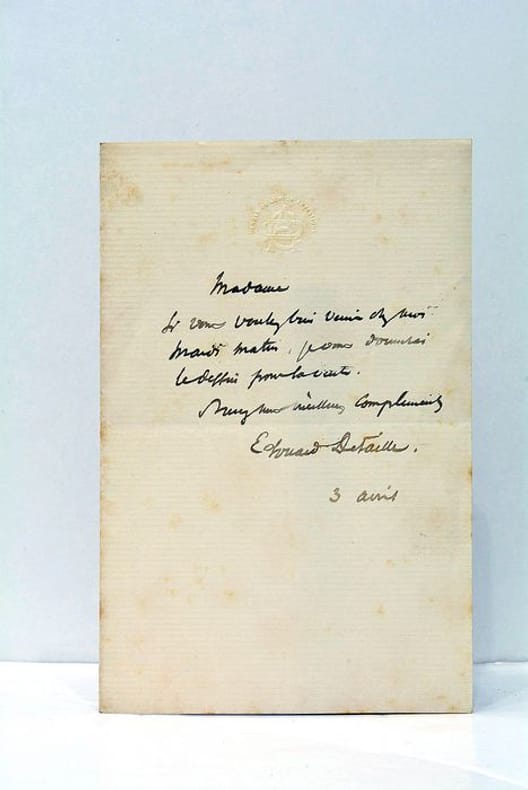 Madame
Si vous voulez bien venir chez moi
Mardi matin, je vous donnerai
le dessin pour la vente.
meilleurs compliments
Edouard Detaille.
3 avril